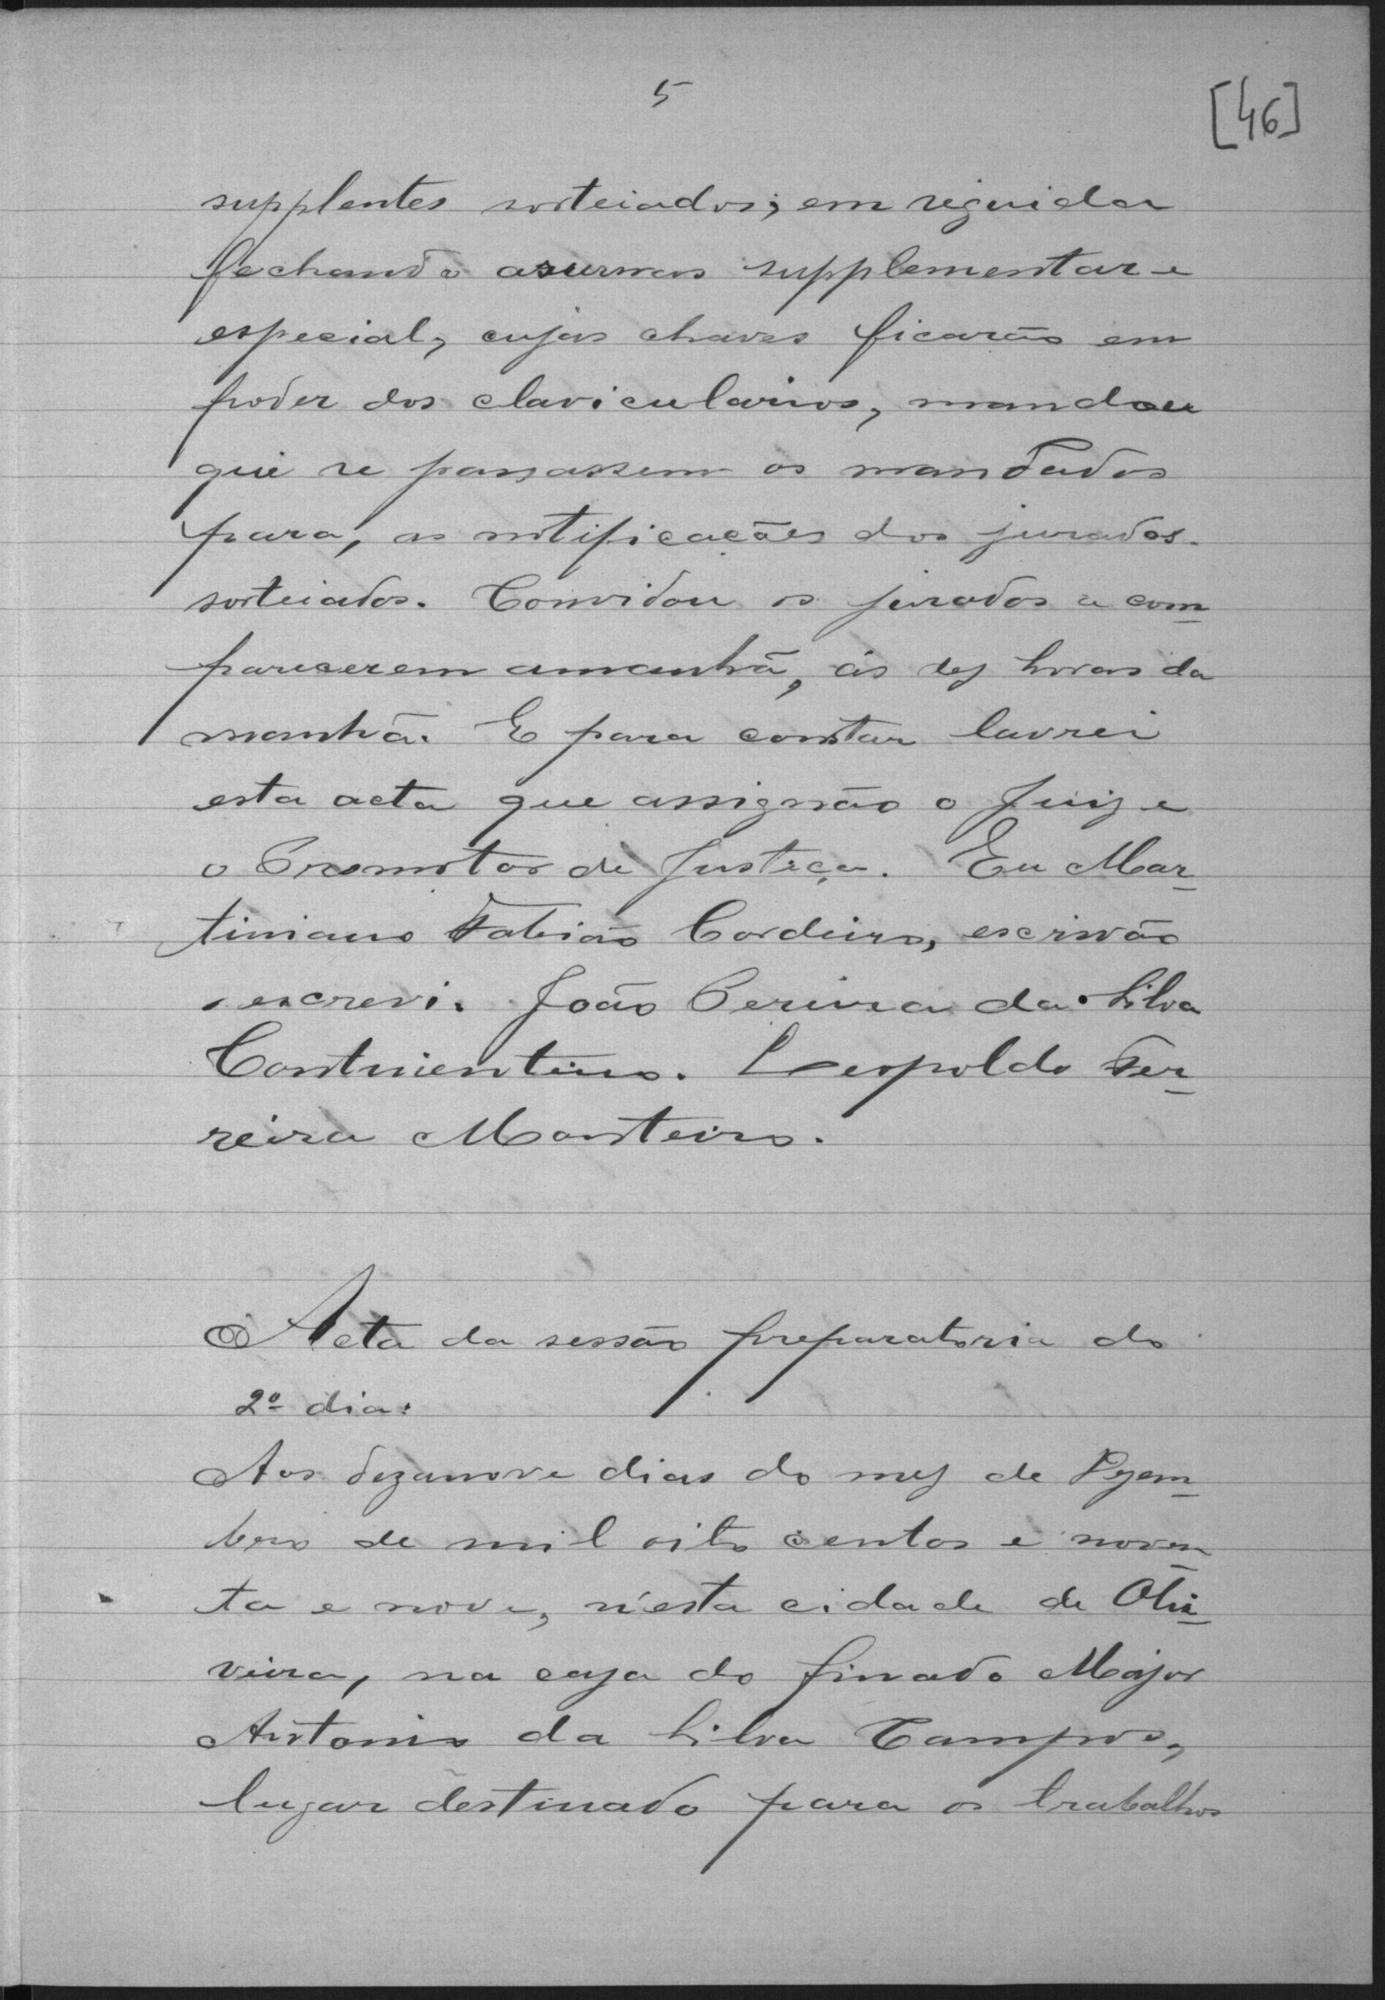 5
[46]
supplentes sorteiados; em seguida
fechando as urnas supplementar e
especial, cujas chaves ficarão em
poder dos clavicularios, mandou
que se passassem os mandados
para, as notificações dos jurados
sorteiados. Convidou os jurados a com
parecerem amanhã, ás dez horas da
manhã. E para constar lavrei
esta acta que assignão o Juiz e
o Promotor de Justiça. Eu Mar-
tiniano Fabião Cordeiro, escrivão
escrevi. João Pereira da Silva
Continentino. Leopoldo Fer-
reira Monteiro.
Acta da sessão preparatoria do
2º dia:
Aos dezanove dias do mez de Dezem-
bro de mil oito centos e noven
ta e nove, n'esta cidade de Oli-
veira, na caza do finado Major
Antonio da Silva Campos,
lugar destinado para os trabalhos